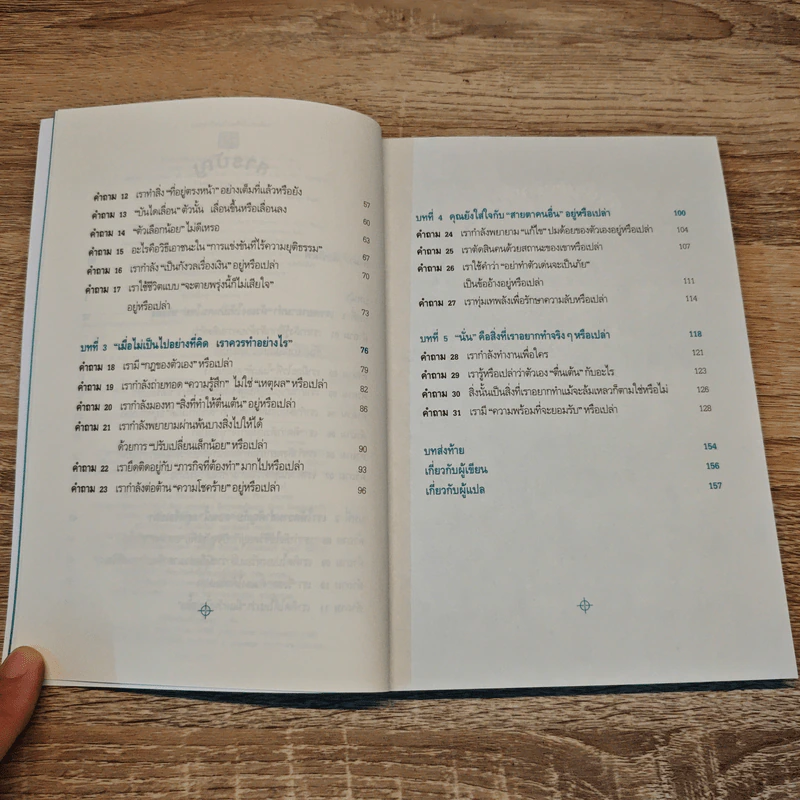 คำถาม 12 เราทำสิ่ง "ที่อยู่ตรงหน้า" อย่างเต็มที่แล้วหรือยัง 57
คำถาม 13 "บันไดเลื่อน" ตัวนั้น เลื่อนขึ้นหรือเลื่อนลง 60
คำถาม 14 "ตัวเลือกน้อย" ไม่ดีเหรอ 63
คำถาม 15 อะไรคือวิธีเอาชนะใน "การแข่งขันที่ไร้ความยุติธรรม" 67
คำถาม 16 เรากำลัง "เป็นกังวลเรื่องเงิน" อยู่หรือเปล่า 70
คำถาม 17 เราใช้ชีวิตแบบ "จะตายพรุ่งนี้ก็ไม่เสียใจ"
อยู่หรือเปล่า 73
บทที่ 3 "เมื่อไม่เป็นไปอย่างที่คิด เราควรทำอย่างไร" 76
คำถาม 18 เรามี "กฎของตัวเอง" หรือเปล่า 79
คำถาม 19 เรากำลังถ่ายทอด "ความรู้สึก" ไม่ใช่ "เหตุผล" หรือเปล่า 82
คำถาม 20 เรากำลังมองหา "สิ่งที่ทำให้ตื่นเต้น" อยู่หรือเปล่า 86
คำถาม 21 เรากำลังพยายามผ่านพ้นบางสิ่งไปให้ได้
ด้วยการ "ปรับเปลี่ยนเล็กน้อย" หรือเปล่า 90
คำถาม 22 เรายึดติดอยู่กับ "ภารกิจที่ต้องทำ" มากไปหรือเปล่า 93
คำถาม 23 เรากำลังต่อต้าน "ความโชคร้าย" อยู่หรือเปล่า 96
บทที่ 4 คุณยังใส่ใจกับ "สายตาคนอื่น" อยู่หรือเปล่า 100
คำถาม 24 เรากำลังพยายาม "แก้ไข" ปมด้อยของตัวเองอยู่หรือเปล่า 104
คำถาม 25 เราตัดสินคนด้วยสถานะของเขาหรือเปล่า 107
คำถาม 26 เราใช้คำว่า "อย่าทำตัวเด่นจะเป็นภัย"
เป็นข้ออ้างอยู่หรือเปล่า 111
คำถาม 27 เราทุ่มเทพลังเพื่อรักษาความลับหรือเปล่า 114
บทที่ 5 "นั่น" คือสิ่งที่เราอยากทำจริง ๆ หรือเปล่า 118
คำถาม 28 เรากำลังทำงานเพื่อใคร 121
คำถาม 29 เรารู้หรือเปล่าว่าตัวเอง "ตื่นเต้น" กับอะไร 123
คำถาม 30 สิ่งนั้นเป็นสิ่งที่เราอยากทำแม้จะล้มเหลวก็ตามใช่หรือไม่ 126
คำถาม 31 เรามี "ความพร้อมที่จะยอมรับ" หรือเปล่า 128
บทส่งท้าย 154
เกี่ยวกับผู้เขียน 156
เกี่ยวกับผู้แปล 157